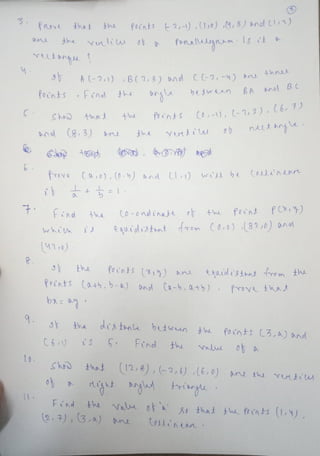 3. Prove that the points (-2,-1), (1,0), (4,3) and (1,2)
are the vertices of a parallelogram. Is it a
rectangle ?
4. If A (-2,1), B(2,3) and C (-2,-4) are three
Points. Find the angle between BA and BC
5. Show that the Points (0,-1), (-2,3), (6,7)
and (8,3) are the vertices of rectangle.
6. Prove (a,0), (0,b) and (1,1) will be collinear
if 1/a + 1/b = 1.
7. Find the co-ordinate of the Point P(x,y)
which is equidistant from (0,0), (32,0) and
8. If the Points (x,y) are equidistant from the
Points (a+b, b-a) and (a-b, a+b). Prove that
bx = ay.
9. If the distance between the Points (3,a) and
(6,1) is 5. Find the value of a
10. Show that (12,8), (-2,6), (6,0) are the vertices
of a right angled triangle.
11. Find the value of 'a' so that the Points (1,4),
(2,7), (3,a) are collinear.